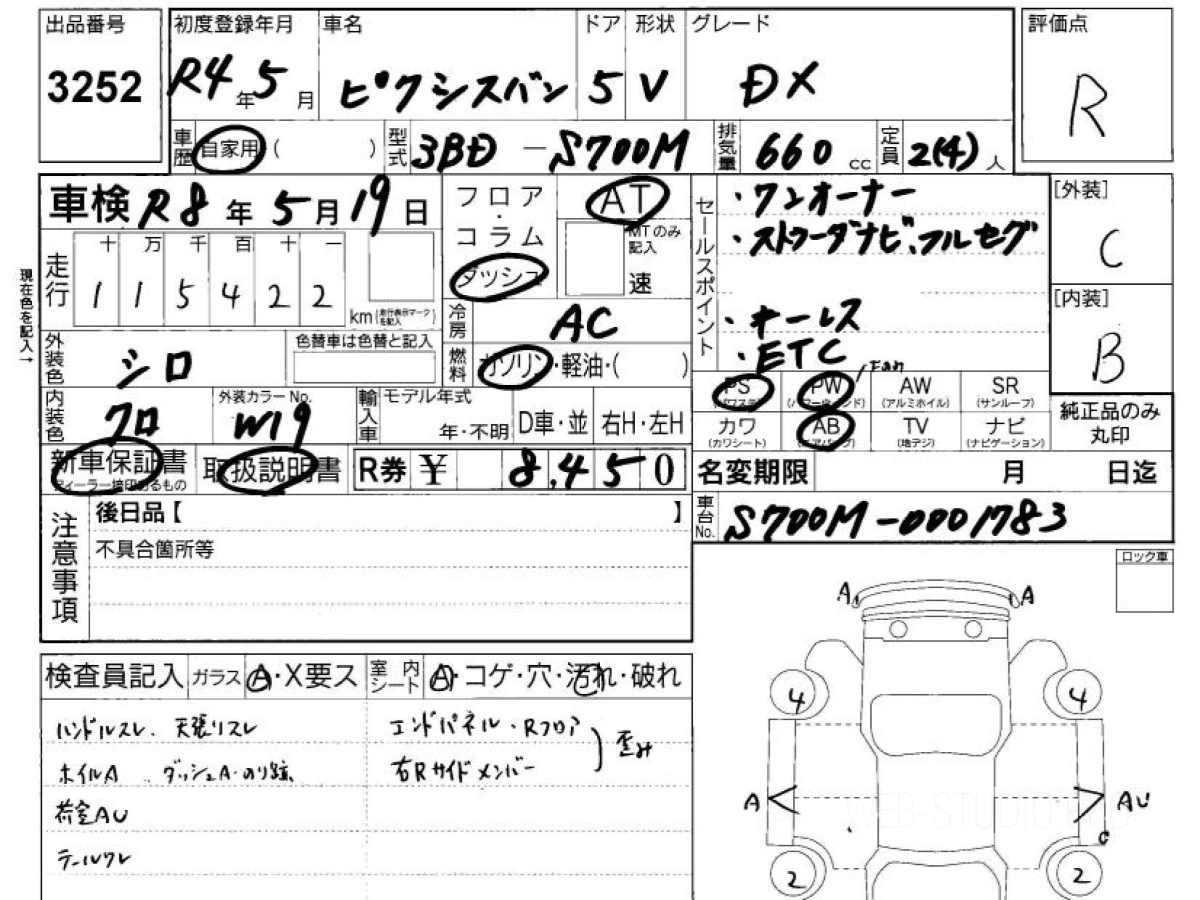 出品番号
3252
初度登録年月
R4年5月
車名
ピクシスバン
ドア
5
形状
V
グレード
DX
評価点
R
車歴
自家用 ( )
型式
3BD-S700M
排気量
660 cc
定員
2(4)人
車検 R8年5月19日
走行
十 万 千 百 十 一
1 1 5 4 2 2
km (走行表示マークを記入)
現在色を記入→
フロア・コラム
ダッシュ
AT
MTのみ記入
速
冷房
AC
燃料
ガソリン・軽油・( )
セールスポイント
・ワンオーナー
・ストラーダナビ、フルセグ
・キーレス
・ETC
[外装]
C
[内装]
B
外装色
シロ
色替車は色替と記入
内装色
クロ
外装カラーNo.
W19
輸入車
モデル年式
年・不明
D車・並
右H・左H
PS
(パワステ)
PW
(パワーウインド)
AW
(アルミホイル)
SR
(サンルーフ)
カワ
(カワシート)
AB
(エアバッグ)
TV
(地デジ)
ナビ
(ナビゲーション)
純正品のみ
丸印
新車保証書
ディーラー捺印あるもの
取扱説明書
R券 ¥ 8,450
名変期限 月 日迄
車台No.
S700M-0001783
注意事項
後日品【 】
不具合箇所等
ロック車
検査員記入
ガラス
A・X要ス
室内シート
A・コゲ・穴・汚れ・破れ
ハンドルスレ、天張リスレ
ホイルA、ダッシュA・のり跡
荷室AU
テールワレ
エンドパネル・Rフロア
右Rサイドメンバー
歪み
A A
4 4
A AU
C
2 2
WEB-STUDIO.PRO